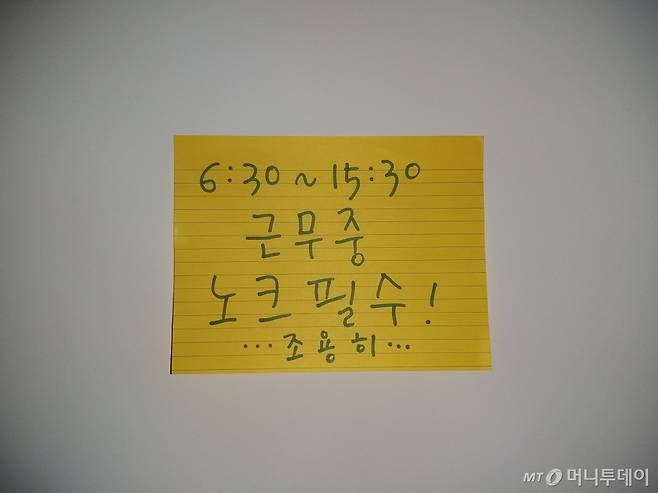 6:30 ~ 15:30
근무중
노크 필수!
... 조용히 ...
MT 머니투데이